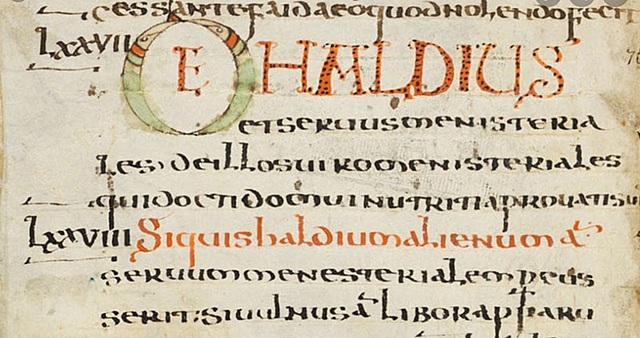 cessante faida eo quod nolendo fecit
LXXVII DE HALDIUS
et seruus menisteria
les · de illos uiro menisteriales
qui docti domui nutriti aprouati su
LXXVIII Si quis haldium alienum at
seruum menesterialem ꝑcus
serit : si uulnus at libor apparu